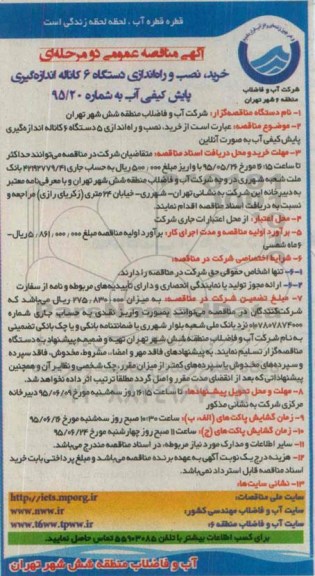 قطره قطره آب ، لحظه لحظه زندگی است
آگهی مناقصه عمومی دو مرحله‌ای
خرید، نصب و راه‌اندازی دستگاه ۶ کاناله اندازه‌گیری
پایش کیفی آب به شماره ۹۵/۲۰
شرکت آب و فاضلاب
منطقه ۶ شهر تهران
۱- نام دستگاه مناقصه‌گزار: شرکت آب و فاضلاب منطقه شش شهر تهران
۲- موضوع مناقصه: عبارت است از خرید، نصب و راه اندازی ۵ دستگاه ۶ کاناله اندازه‌گیری
پایش کیفی آب به صورت آنلاین
۳- مهلت خرید و محل دریافت اسناد مناقصه: متقاضیان شرکت در مناقصه می‌توانند حداکثر
تا ساعت ۱۶:۱۵ مورخ ۹۵/۰۵/۲۶ با واریز مبلغ ۵۰۰,۰۰۰ ریال به حساب جاری بانک
ملت شعبه شهرری در وجه شرکت آب و فاضلاب منطقه شش شهر تهران و با معرفی‌نامه معتبر
به دبیرخانه این شرکت به نشانی تهران- شهرری- خیابان ۲۴ متری (زکریای رازی) مراجعه و
نسبت به دریافت اسناد مناقصه اقدام نمایند.
۴- محل اعتبار: از محل اعتبارات جاری شرکت
۵- برآورد اولیه مناقصه و مدت اجرای کار: برآورد اولیه مناقصه مبلغ ۵,۸۶۱,۰۰۰,۰۰۰ ریال-
۶ ماه شمسی
۶- شرایط اختصاصی شرکت در مناقصه:
۱-۶- تنها اشخاص حقوقی حق شرکت در مناقصه را دارند.
۲-۶- ارائه مجوز تولید یا نمایندگی انحصاری و دارای تأییدیه‌های مربوطه و نامه از سفارت
۷- مبلغ تضمین شرکت در مناقصه: به میزان ۲۷۵,۸۳۰,۰۰۰ ریال می‌باشد که
شرکت‌کنندگان در مناقصه می‌توانند بصورت واریز نقدی به حساب جاری شماره
نزد بانک ملی شعبه بلوار شهرری یا ضمانتنامه بانکی و یا چک بانکی تضمینی
به نام شرکت آب و فاضلاب منطقه شش شهر تهران تهیه و ضمیمه پیشنهاد به دستگاه
مناقصه‌گزار تسلیم نمایند. به پیشنهادهای فاقد مهر و امضاء، مشروط، مخدوش، فاقد سپرده
و سپرده‌های مخدوش یا سپرده‌های کمتر از میزان مقرر، چک شخصی و نظایر آن و همچنین
پیشنهاداتی که بعد از انقضای مدت مقرر و اصل گردد مطلقا ترتیب اثر داده نخواهد شد.
۸- مهلت و محل تحویل پیشنهادها: تا ساعت ۱۶:۱۵ روز سه‌شنبه مورخ ۹۵/۰۶/۰۹ دبیرخانه
مرکزی شرکت به نشانی مذکور
۹- زمان گشایش پاکت‌های (الف- ب): ساعت ۱۰:۳۰ صبح روز سه‌شنبه مورخ ۹۵/۰۶/۱۶
۱۰- زمان گشایش پاکت‌های (ج): ساعت ۱۱ صبح روز چهارشنبه مورخ ۹۵/۰۶/۲۴
۱۱- سایر اطلاعات و مدارک مورد نیاز مربوطه، در اسناد مناقصه مندرج می‌باشد.
۱۲- هزینه درج یک نوبت آگهی به عهده برنده مناقصه می‌باشد و مبلغ پرداختی بابت خرید
اسناد مناقصه قابل استرداد نمی‌باشد.
۱۳- نشانی سایت‌ها:
سایت ملی مناقصات: http://iets.mporg.ir
سایت آب و فاضلاب مهندسی کشور: www.nww.ir
سایت آب و فاضلاب منطقه ۶: www.t6ww.tpww.ir
برای کسب اطلاعات بیشتر با تلفن ۵۵۹۰۳۰۸۵ تماس حاصل نمایید.
آب و فاضلاب منطقه شش شهر تهران